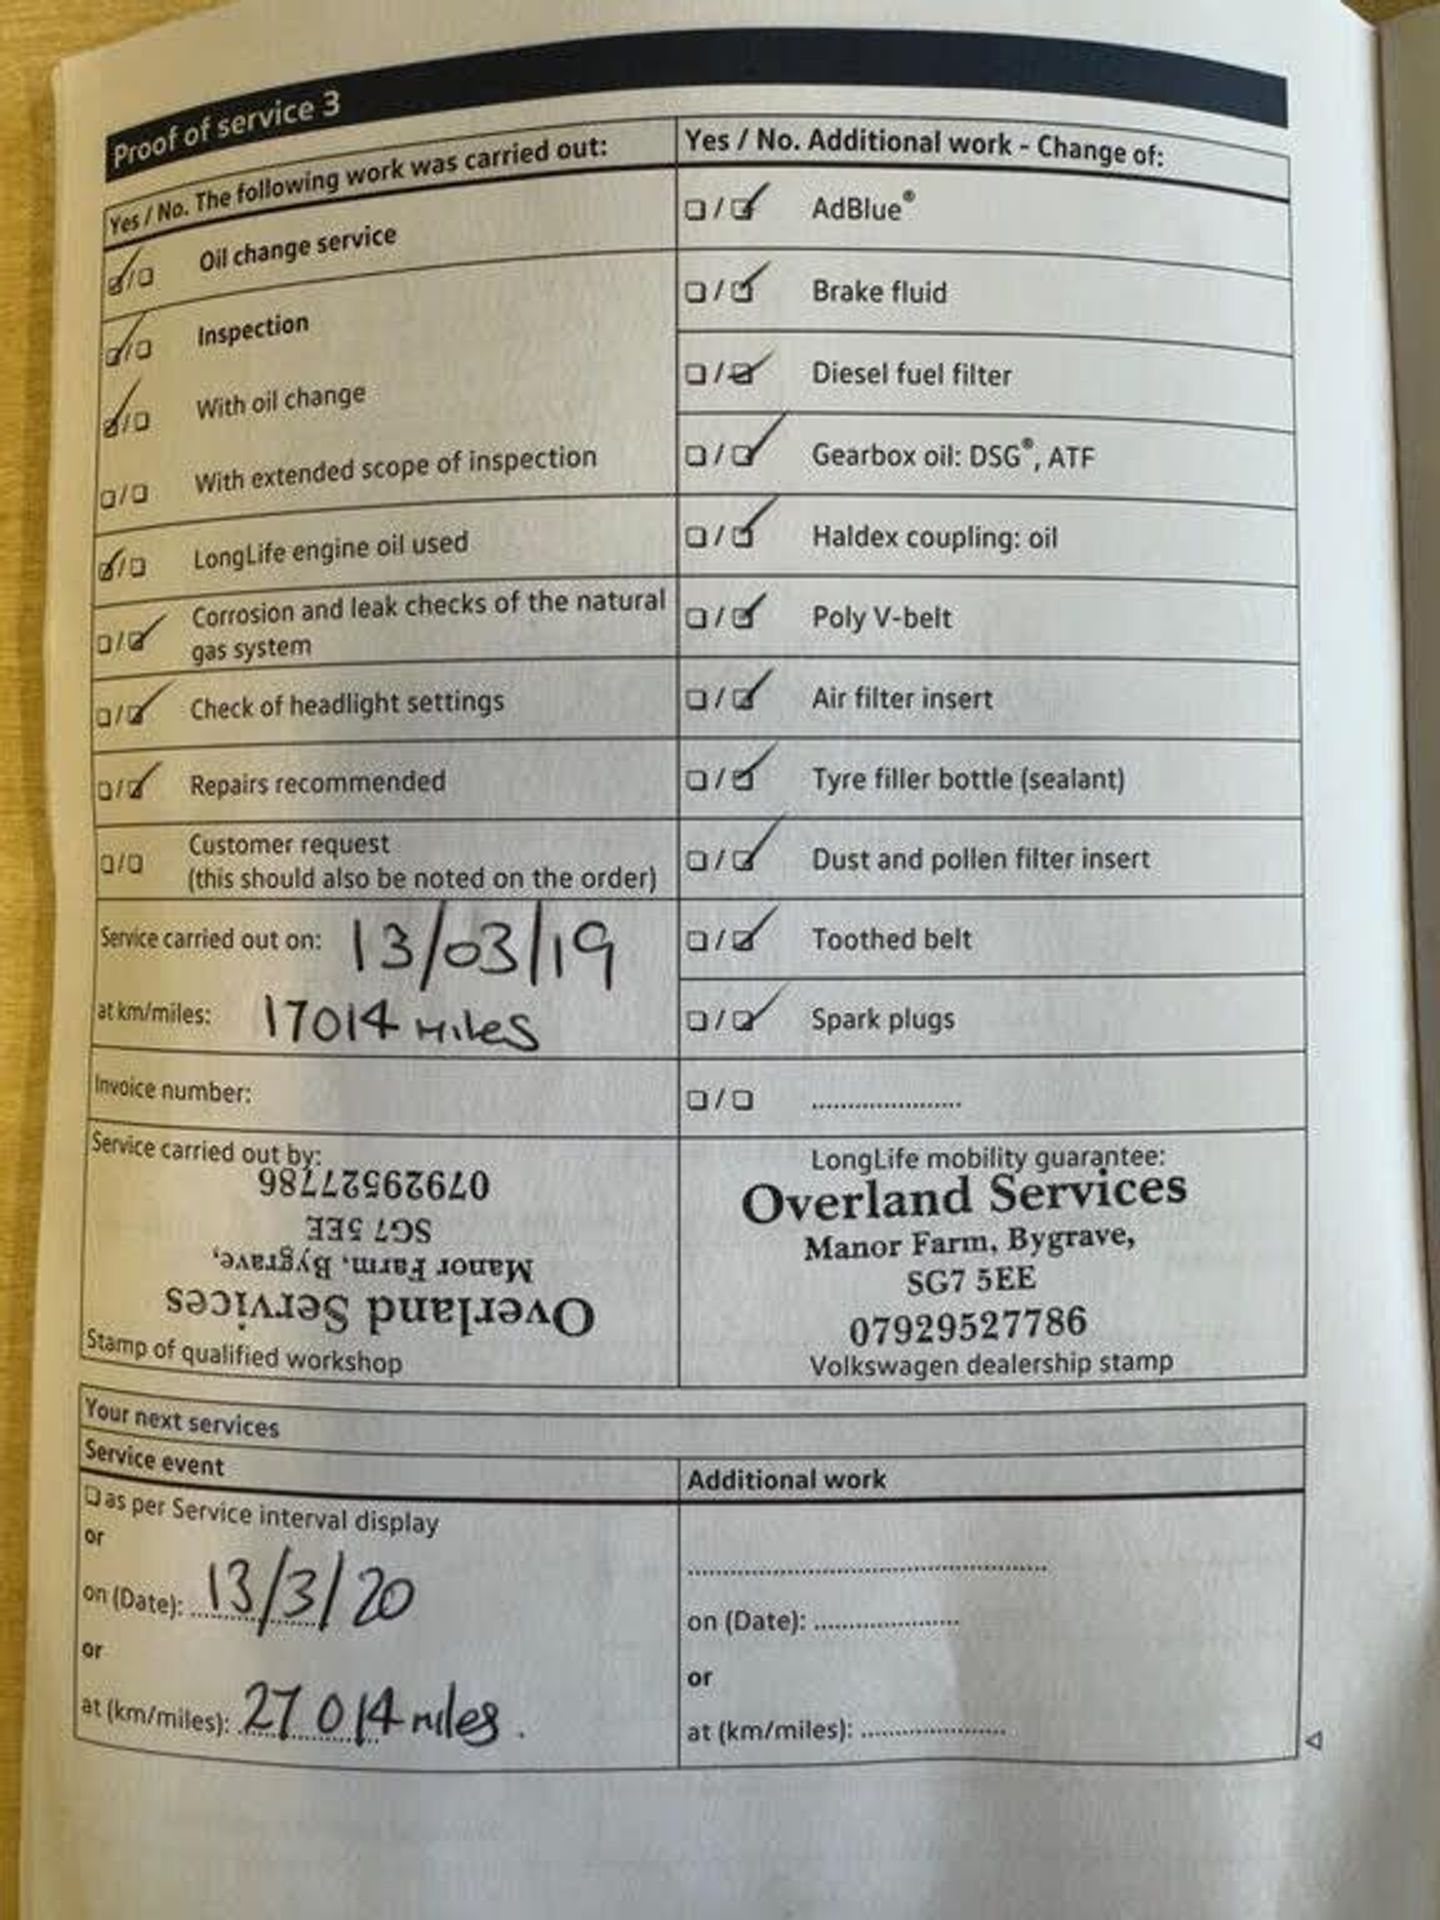 Proof of service 3
Yes / No. The following work was carried out:
☑/☐ Oil change service
☑/☐ Inspection
☑/☐ With oil change
☐/☐ With extended scope of inspection
☑/☐ LongLife engine oil used
☐/☑ Corrosion and leak checks of the natural
gas system
☐/☑ Check of headlight settings
☐/☑ Repairs recommended
☐/☐ Customer request
(this should also be noted on the order)
Service carried out on: 13/03/19
at km/miles: 17014 miles
Invoice number:
Service carried out by:
07929527786
SG7 5EE
Manor Farm, Bygrave,
Overland Services
Stamp of qualified workshop
Yes / No. Additional work - Change of:
☐/☑ AdBlue®
☐/☑ Brake fluid
☐/☑ Diesel fuel filter
☐/☑ Gearbox oil: DSG®, ATF
☐/☑ Haldex coupling: oil
☐/☑ Poly V-belt
☐/☑ Air filter insert
☐/☑ Tyre filler bottle (sealant)
☐/☑ Dust and pollen filter insert
☐/☑ Toothed belt
☐/☑ Spark plugs
☐/☐ .....................
LongLife mobility guarantee:
Overland Services
Manor Farm, Bygrave,
SG7 5EE
07929527786
Volkswagen dealership stamp
Your next services
Service event
☐ as per Service interval display
or
on (Date): 13/3/20
or
at (km/miles): 27014 miles.
Additional work
..................................................
on (Date): ....................
or
at (km/miles): ....................